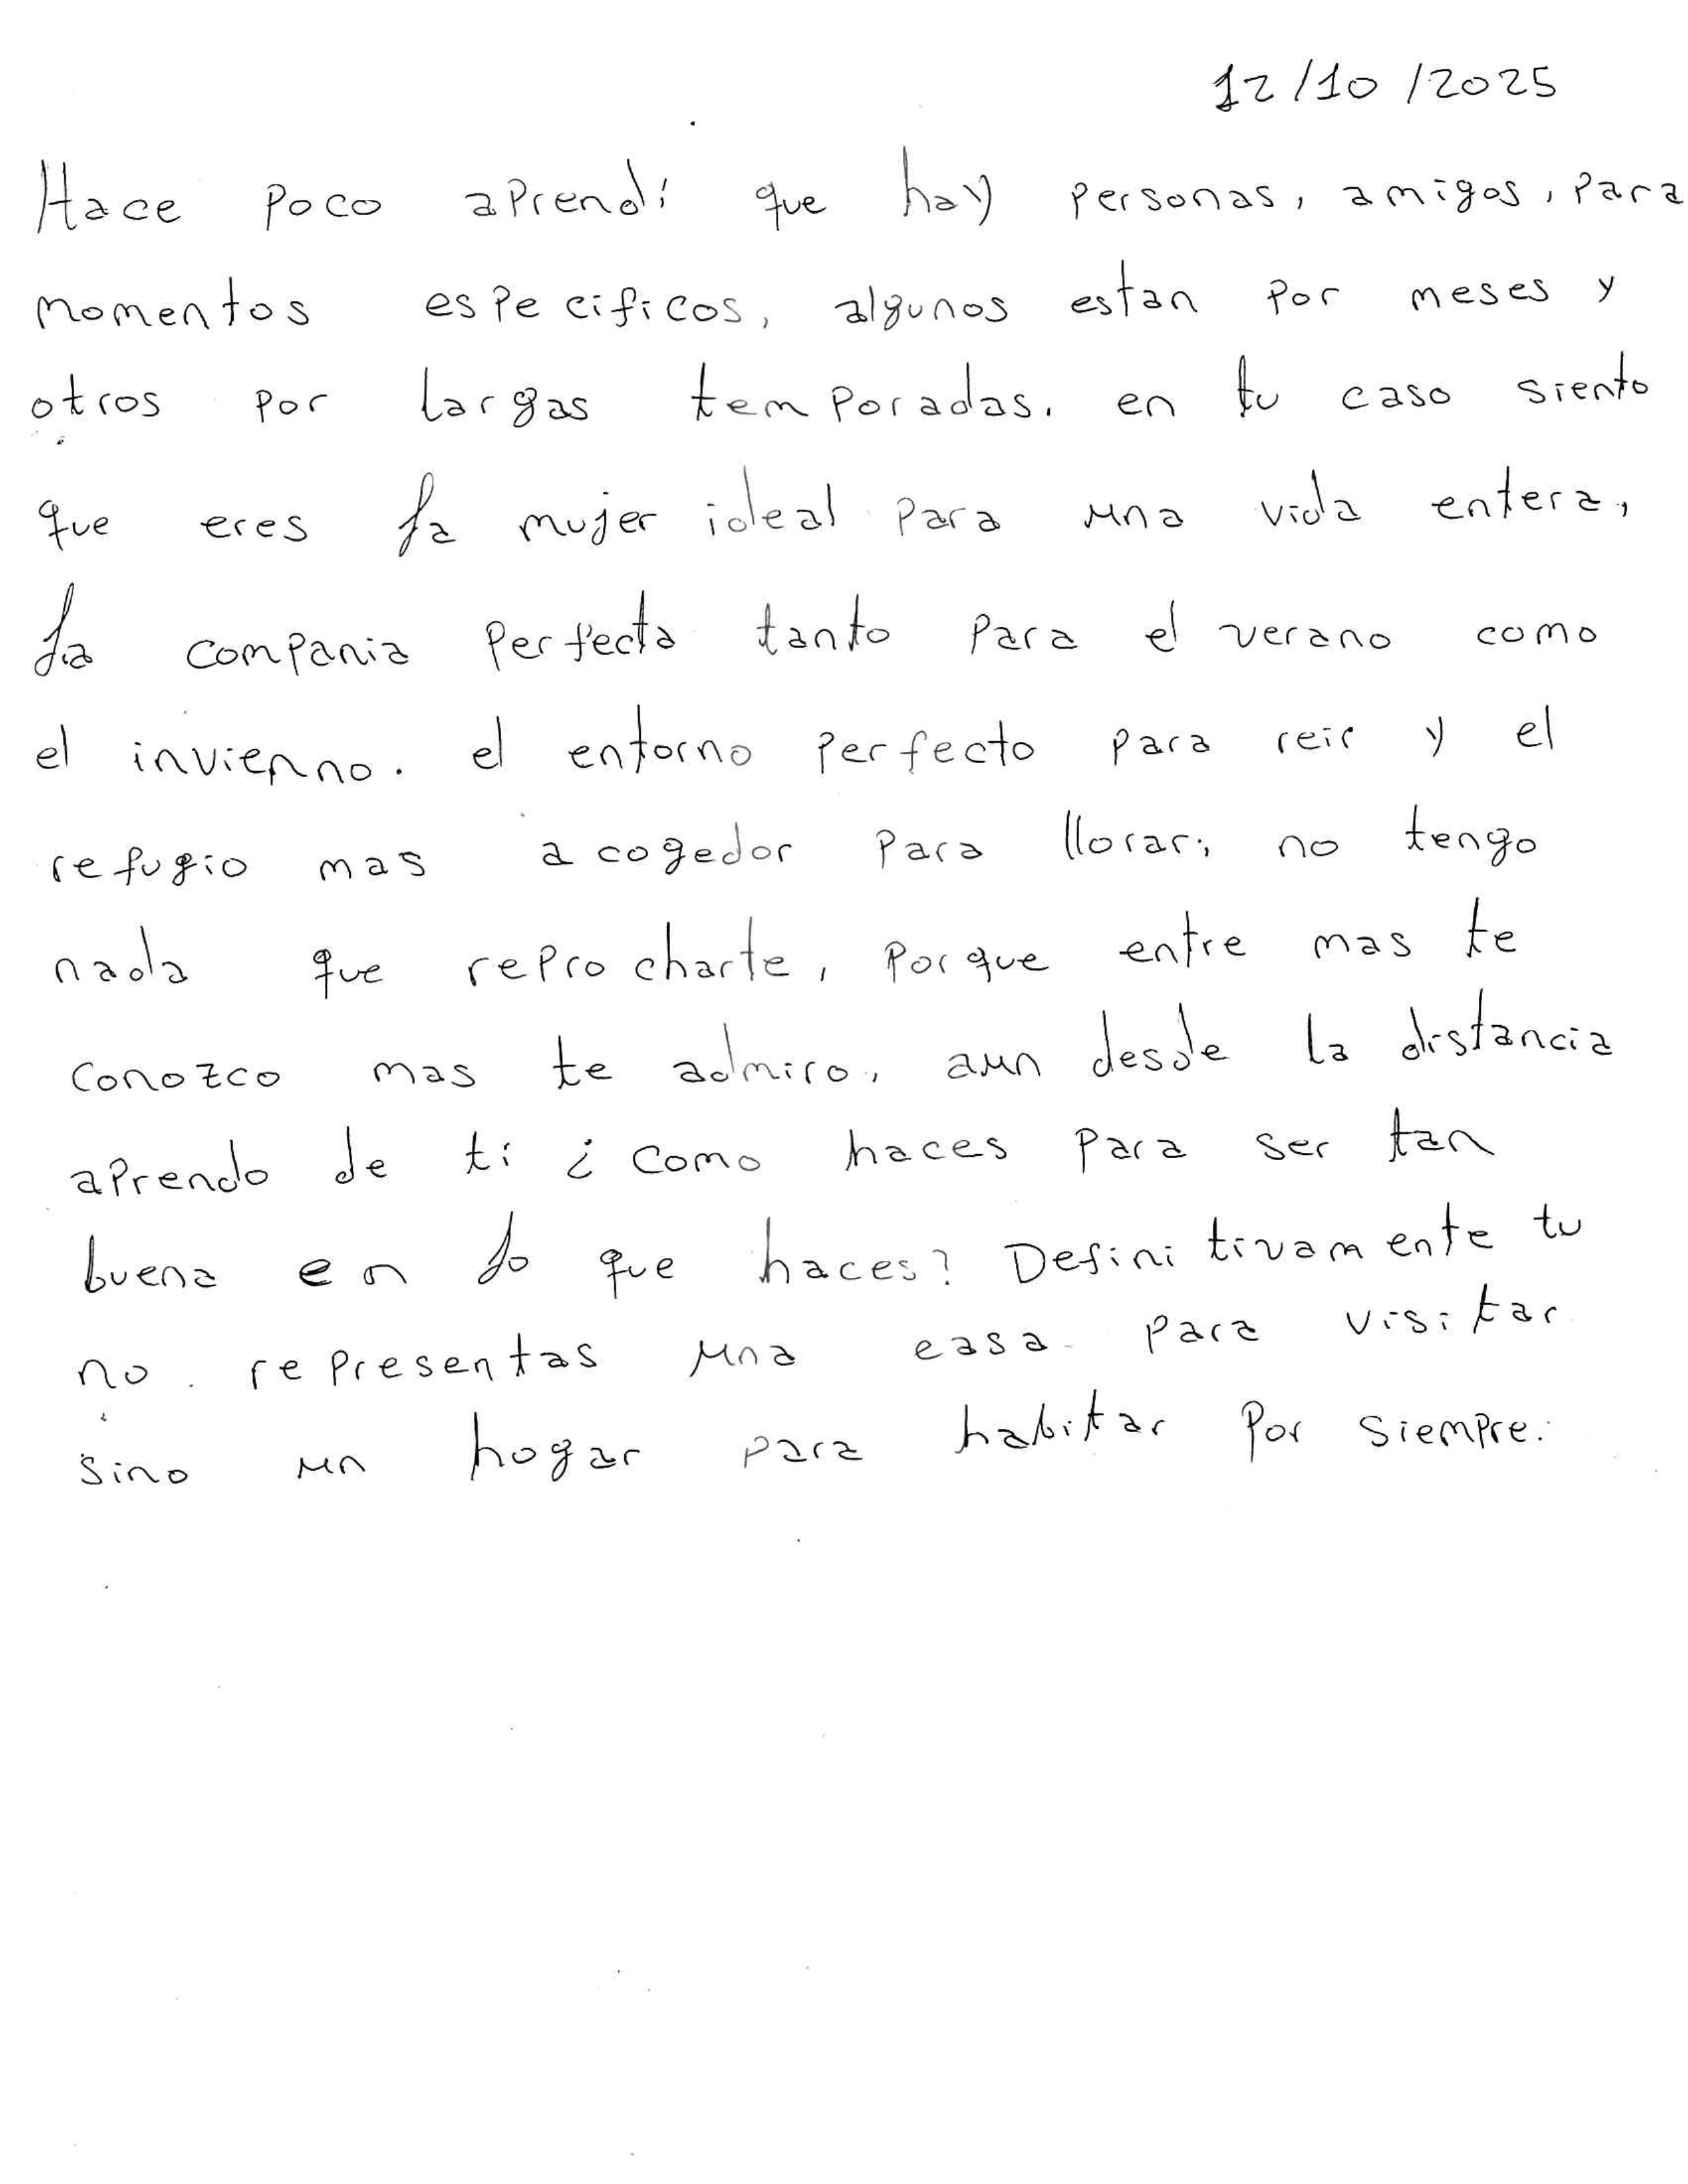 12/10/2025
Hace poco aprendí que hay personas, amigos, para
momentos especificos, algunos estan por meses y
otros por largas temporadas. en tu caso siento
que eres la mujer ideal para una vida entera,
La compania perfecta tanto para el verano como
el invierno. el entorno perfecto para reir y el
refugio mas acogedor para llorar; no tengo
nada que reprocharte, porque entre mas te
conozco mas te admiro, aun desde la distancia
aprendo de ti ¿como haces para ser tan
buena en lo que haces? Definitivamente tu
no representas una casa para visitar
sino un hogar para habitar por siempre.